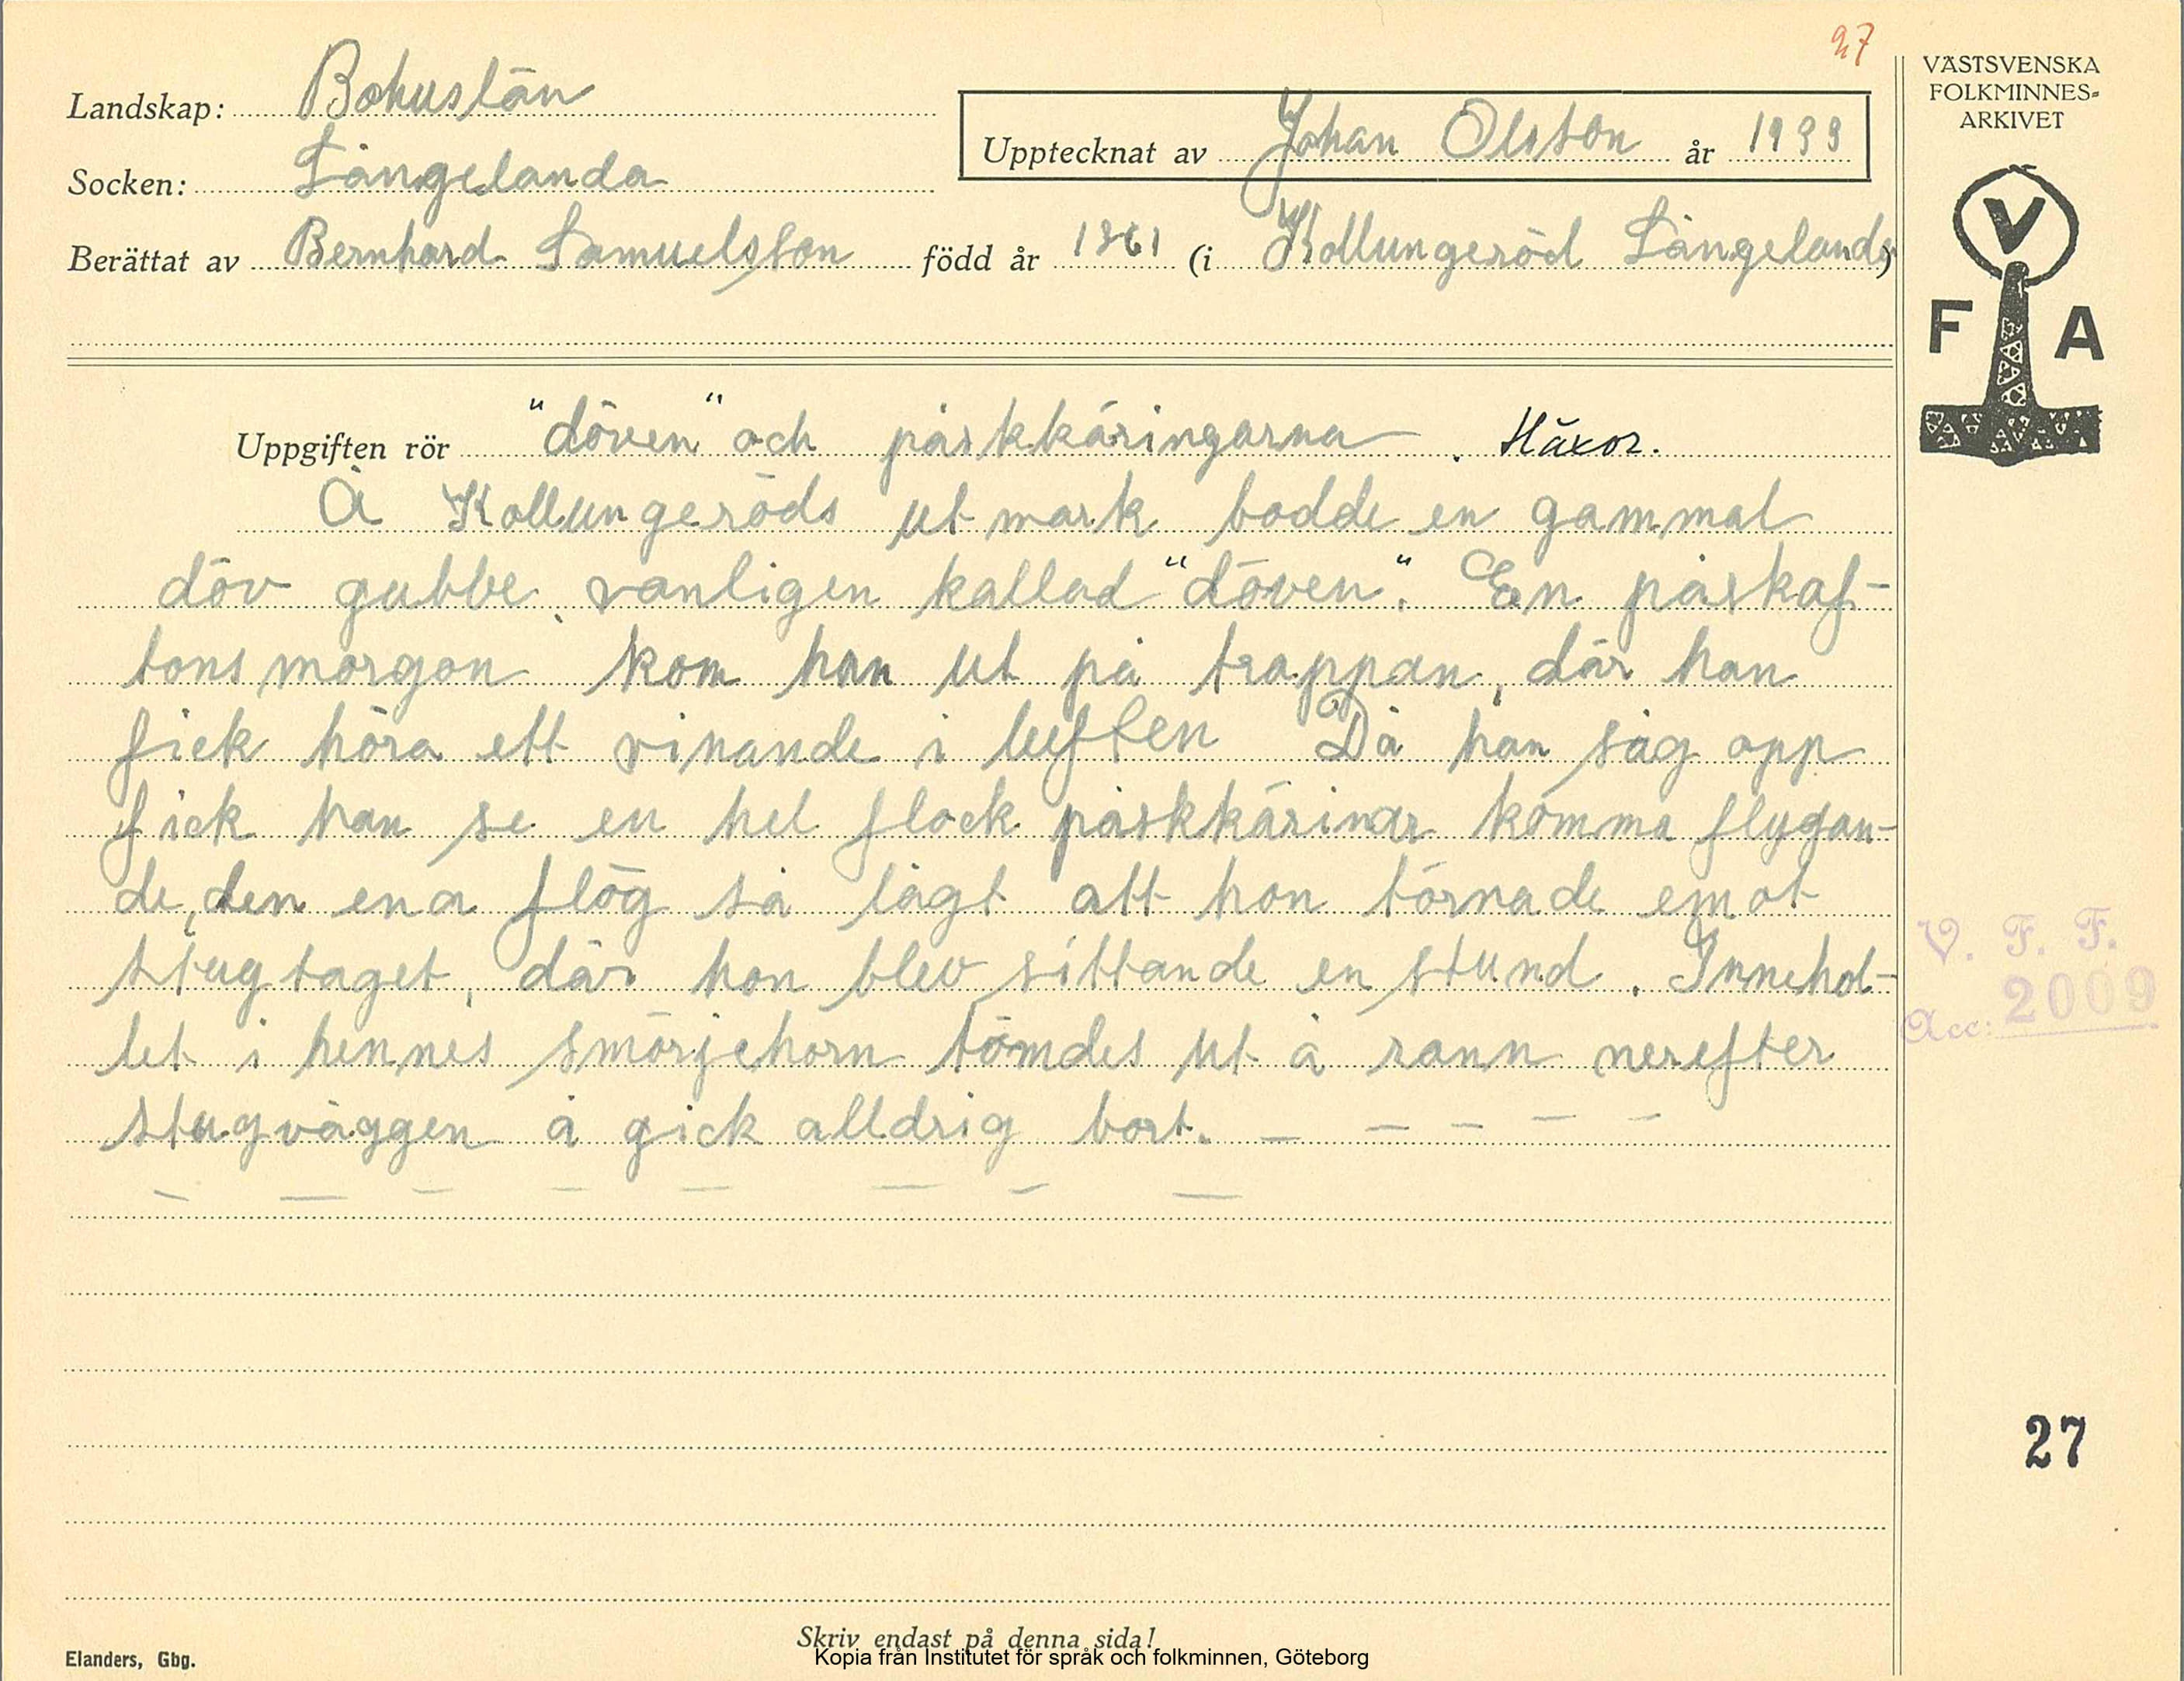 27
VÄSTSVENSKA
FOLKMINNES-
ARKIVET
Landskap: Bohuslän
Upptecknat av Johan Olsson år 1933
Socken: Långelanda
Berättat av Bernhard Samuelsson född år 1861 (i Kollungeröd Långelanda)
V
F A
Uppgiften rör "döven" och påskkäringarna. Häxor.
Å Kollungeröds utmark bodde en gammal
döv gubbe, vanligen kallad "döven". En påskaf-
tonsmorgon kom han ut på trappan, där han
fick höra ett vinande i luften Då han såg opp
fick han se en hel flock påskkäringar komma flygan-
de, den ena flög så lågt att hon törnade emot
stugtaget, där hon blev sittande en stund. Innehol-
let i hennes smörjehorn tömdes ut å rann nerefter
stugväggen å gick alldrig bort. — — — — —
— — — — — — — —
V. F. F.
Acc: 2009
27
Skriv endast på denna sida!
Elanders, Gbg.
Kopia från Institutet för språk och folkminnen, Göteborg